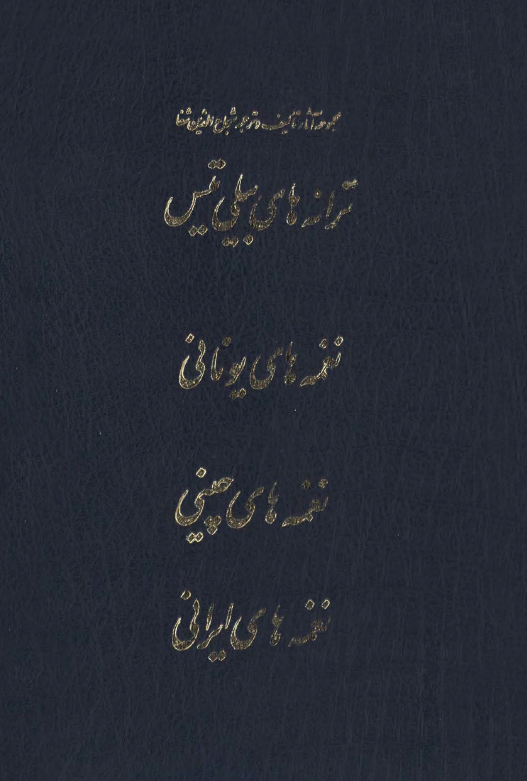 مجموعه آثار تألیف و ترجمه شجاع الدین شفا
ترانه های بیلی تیس
نغمه های یونانی
نغمه های چینی
نغمه های ایرانی